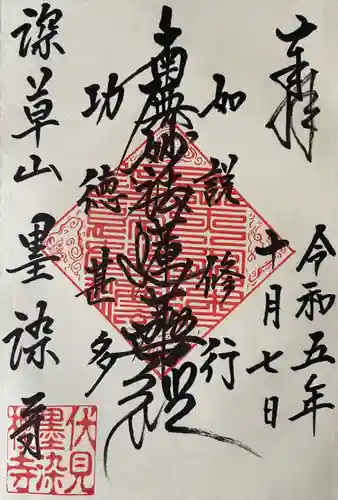 奉拝
令和五年
十月七日
如説修行
南無妙法蓮華経
功徳甚多
深草山
墨染寺
伏見
墨染